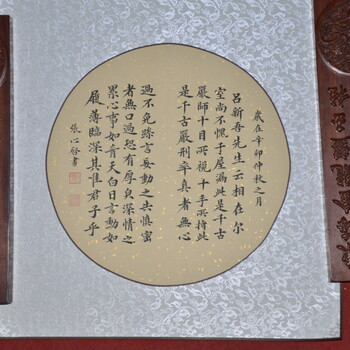 歲在辛卯仲秋之月
呂新吾先生云相在尔
室尚不愧于屋漏此是千古
嚴師十目所視十手所指此
是千古嚴刑率真者無心
過不免言妄動之失慎密
者無口過恐有厚貌深情之
累心事如青天白日言動如
履薄臨深其惟君子乎
張心書